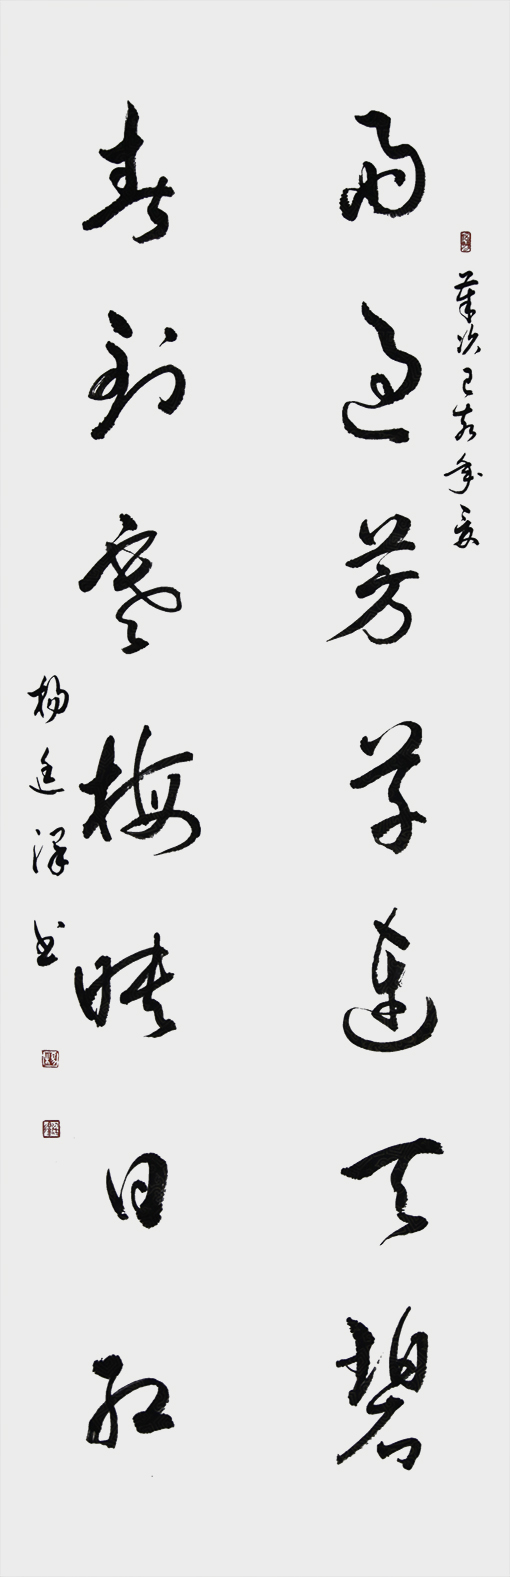 歲次己亥年夏
雨過芳草連天碧
春到寒梅映日紅
楊廷澤書